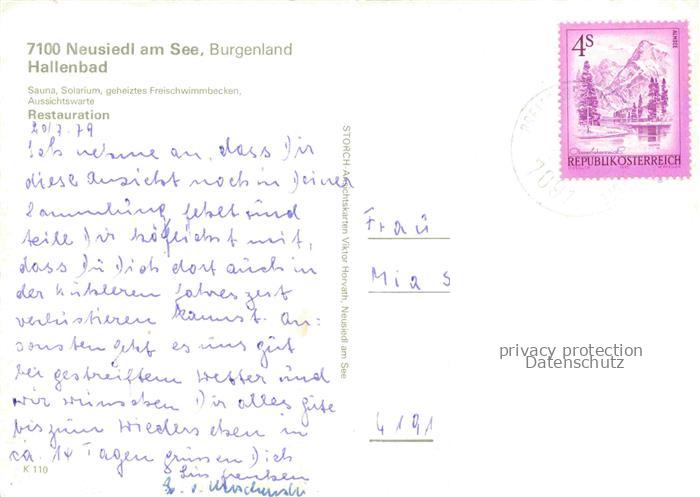 7100 Neusiedl am See, Burgenland
Hallenbad
Sauna, Solarium, geheiztes Freischwimmbecken,
Aussichtswarte
Restauration
20/7.79
Ich nehme an, dass Dir
diese Ansicht noch in Deiner
Sammlung fehlt und
teile Dir höflichst mit,
dass Du Dich dort auch in
der kühleren Jahreszeit
verlustieren kannst. An:
sonsten geht es uns gut
bei gestreiftem Wetter und
wir wünschen Dir alles gute
bis zum Wiedersehen in
ca. 14 Tagen grüssen Dich
K 110
STORCH Ansichtskarten Viktor Horvath, Neusiedl am See
4s
ALMSEE
REPUBLIK ÖSTERREICH
7091
Frau
Mias
privacy protection
Datenschutz
4191